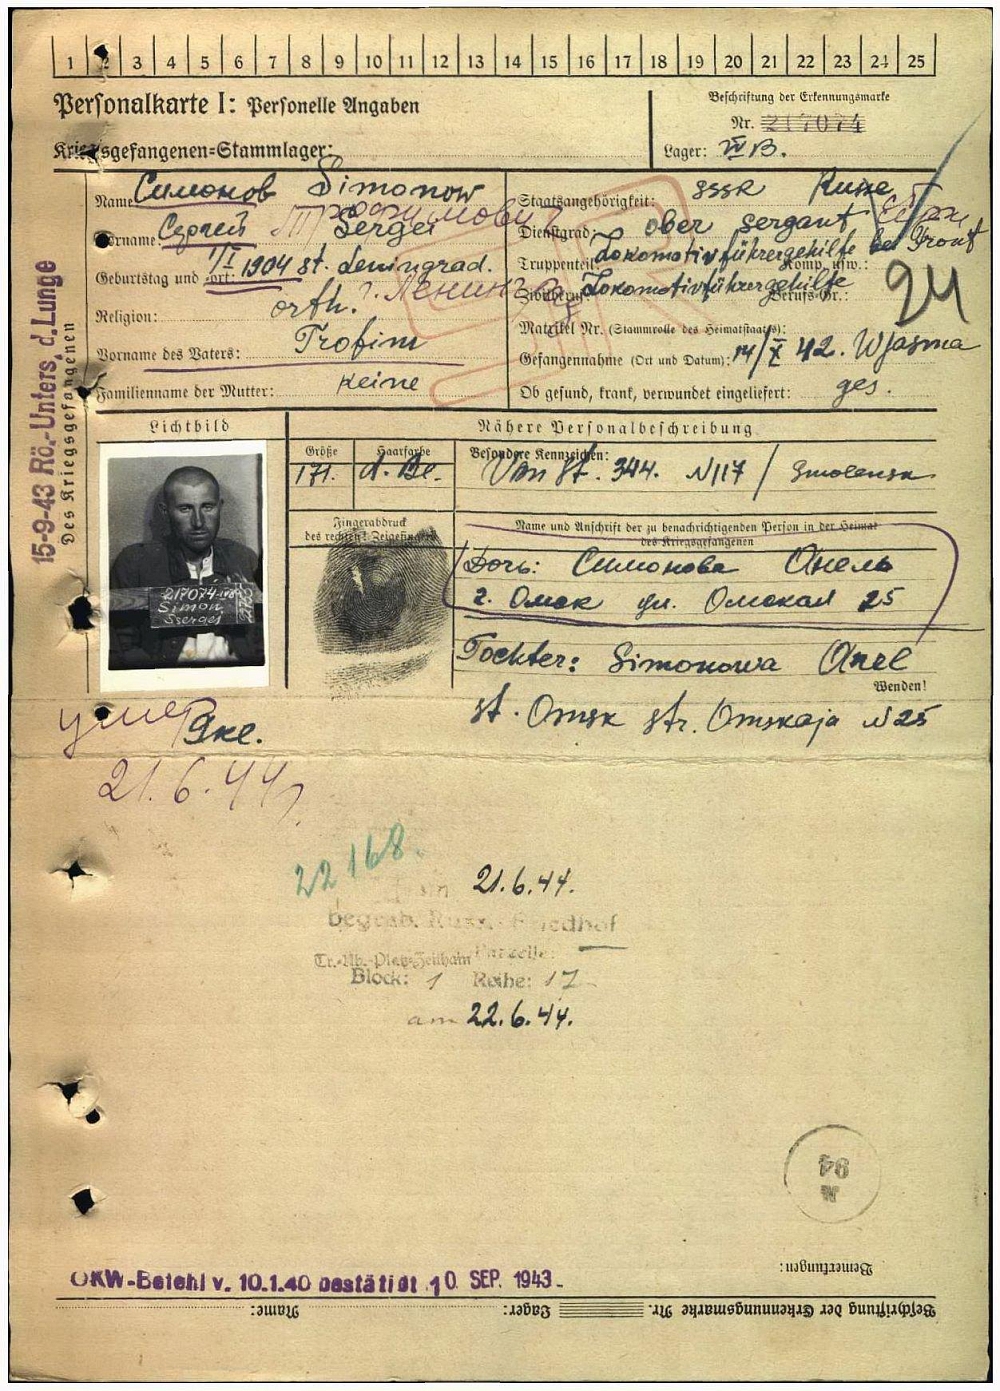 1 2 3 4 5 6 7 8 9 10 11 12 13 14 15 16 17 18 19 20 21 22 23 24 25
Personalkarte I: Personelle Angaben
Kriegsgefangenen-Stammlager:
Beschriftung der Erkennungsmarke
Nr. 217074
Lager: IV B.
Des Kriegsgefangenen
15-9-43 Rö.-Unters. d. Lunge
Name: Симонов Simonow
Vorname: Сергей Трофимович Sergei
Geburtstag und -ort: 1/I 1904 st. Leningrad.
г. Ленинград
Religion: orth.
Vorname des Vaters: Trofim
Familienname der Mutter: keine
Staatsangehörigkeit: SSSR Russe
Dienstgrad: ober sergant
Truppenteil: Lokomotivführergehilfe bei Front Komp. usw.:
Zivilberuf: Lokomotivführergehilfe Berufs-Gr.:
24
Matrikel Nr. (Stammrolle des Heimatstaates):
Gefangennahme (Ort und Datum): 14/X 42. Wjasma
Ob gesund, krank, verwundet eingeliefert: ges.
Lichtbild
Nähere Personalbeschreibung
Größe
171.
Haarfarbe
d. Bl.
Besondere Kennzeichen:
Von St. 344. N117 / Smolensk
217074
Simon
Ssergei
Fingerabdruck
des rechten Zeigefingers
Name und Anschrift der zu benachrichtigenden Person in der Heimat
des Kriegsgefangenen
Дочь: Симонова Анель
г. Омск ул. Омская 25
Tochter: Simonowa Anel
Wenden!
st. Omsk str. Omskaja N25
умер
21.6.44
22168.
21.6.44.
begrab. Russ. Friedhof
Tr.-Üb.-Platz Zeithain Parzelle: —
Block: 1 Reihe: 17
am 22.6.44.
M
94
OKW-Befehl v. 10.1.40 bestätigt 10. SEP. 1943
Bemerkungen:
Beschriftung der Erkennungsmarke Nr. Lager: Name: